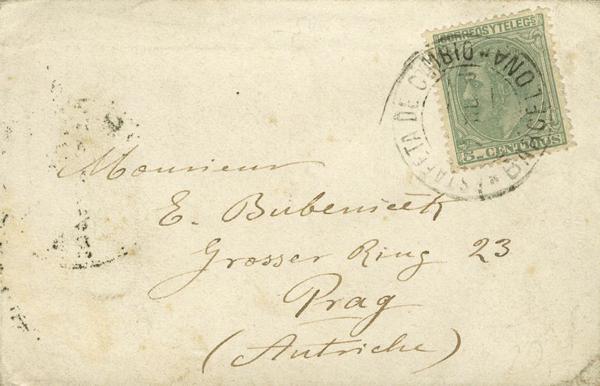 CORREOS Y TELEGS
5 CENTIMOS
ESTAFETA DE CAMBIO
BARCELONA
Monsieur
E. Bubenicek
Grosser Ring 23
Prag
(Autriche)